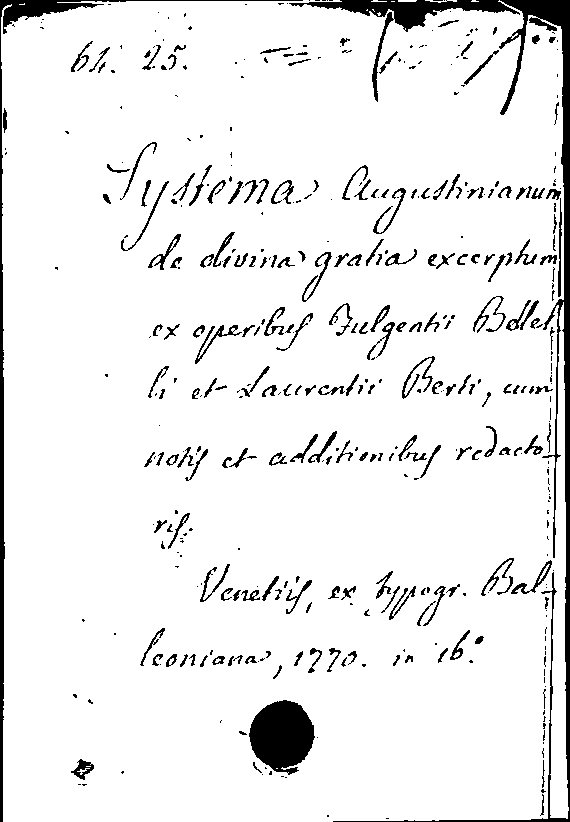 64. 25.
Systema Augustinianum
de divina gratia excerptum
ex operibus Fulgentii Bellel-
li et Laurentii Berti, cum
notis et additionibus redacto-
ris.
Venetiis, ex typogr. Bal-
leoniana, 1770. in 16.°